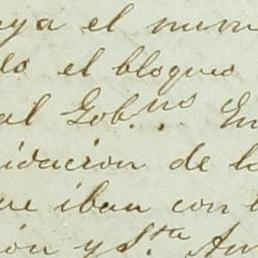 aya el num
do el bloqueo
al Gob.no En
idacion de l
ue iban con l
ión y S.ta An